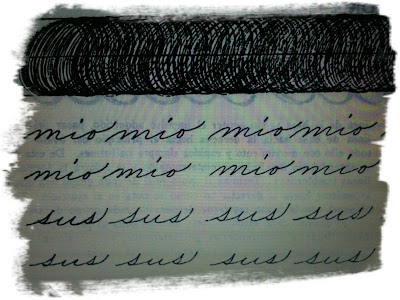 mio mio mio mio
mio mio mio mio
sus sus sus sus
sus sus sus sus